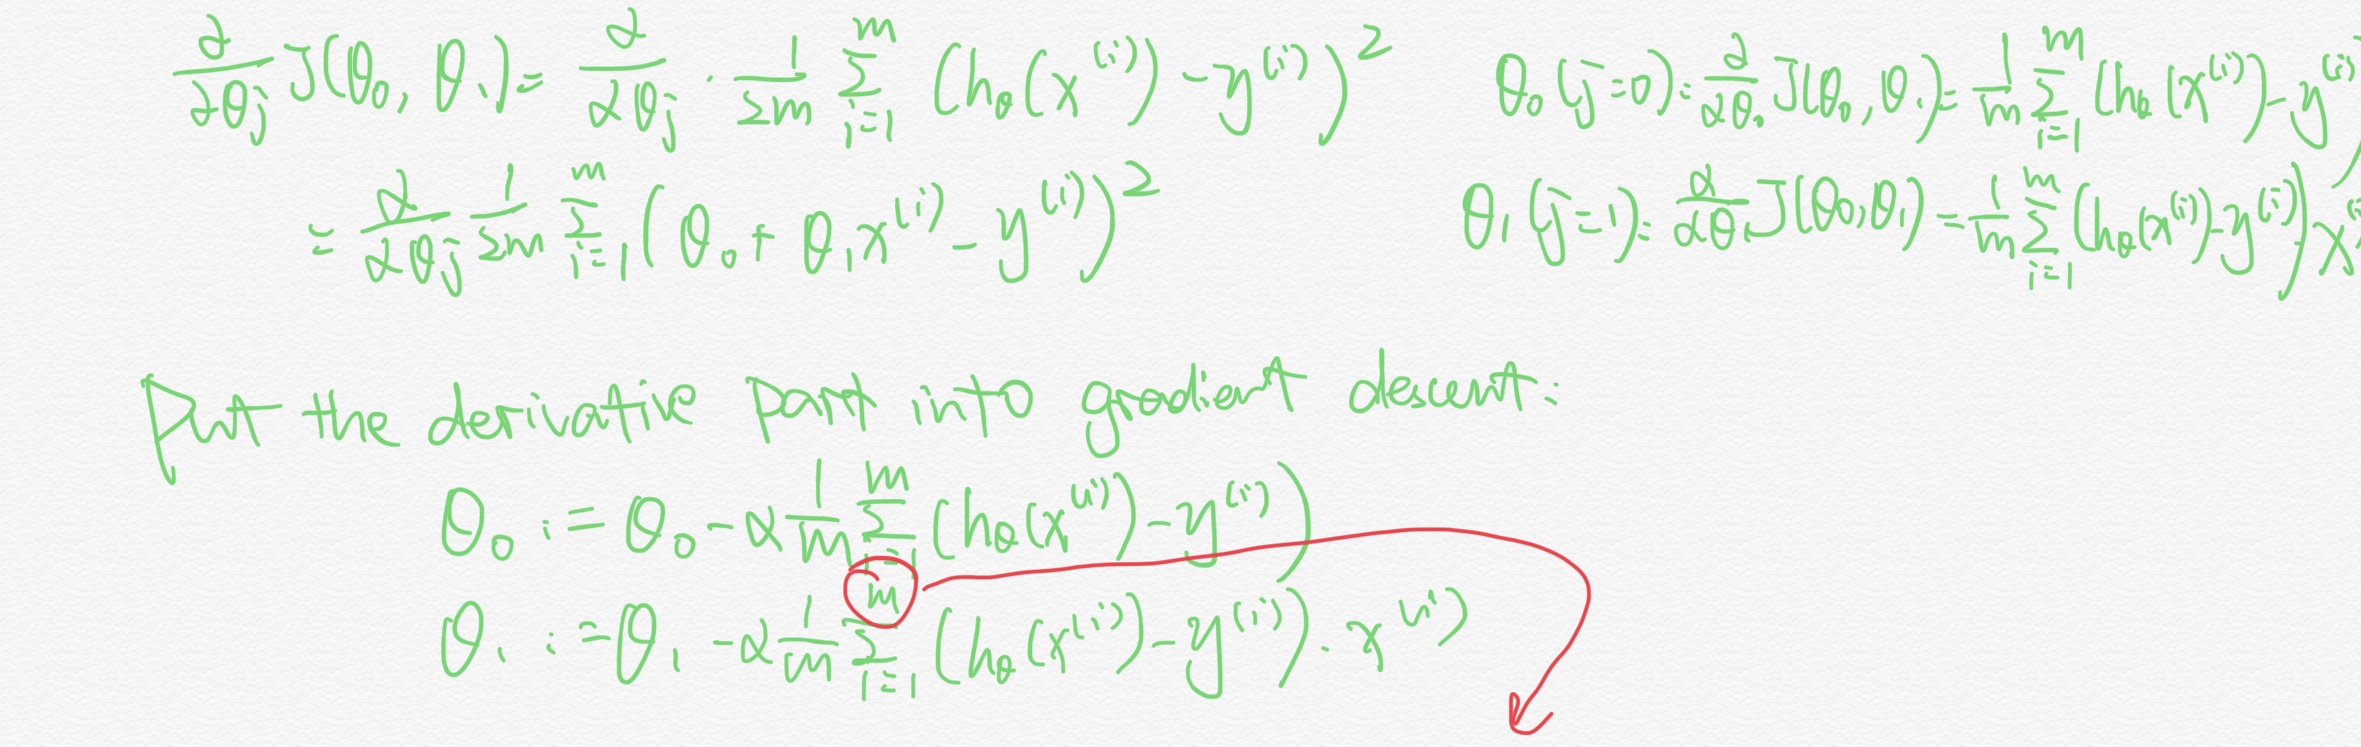 ∂/∂θj J(θ0, θ1) = ∂/∂θj · 1/2m Σ_{i=1}^{m} (hθ(x^(i)) - y^(i))^2
= ∂/∂θj 1/2m Σ_{i=1}^{m} (θ0 + θ1 x^(i) - y^(i))^2
θ0 (j=0): ∂/∂θ0 J(θ0, θ1) = 1/m Σ_{i=1}^{m} (hθ(x^(i)) - y^(i))
θ1 (j=1): ∂/∂θ1 J(θ0, θ1) = 1/m Σ_{i=1}^{m} (hθ(x^(i)) - y^(i)) x^(i
Put the derivative part into gradient descent:
θ0 := θ0 - α 1/m Σ_{i=1}^{m} (hθ(x^(i)) - y^(i))
θ1 := θ1 - α 1/m Σ_{i=1}^{m} (hθ(x^(i)) - y^(i)) · x^(i)